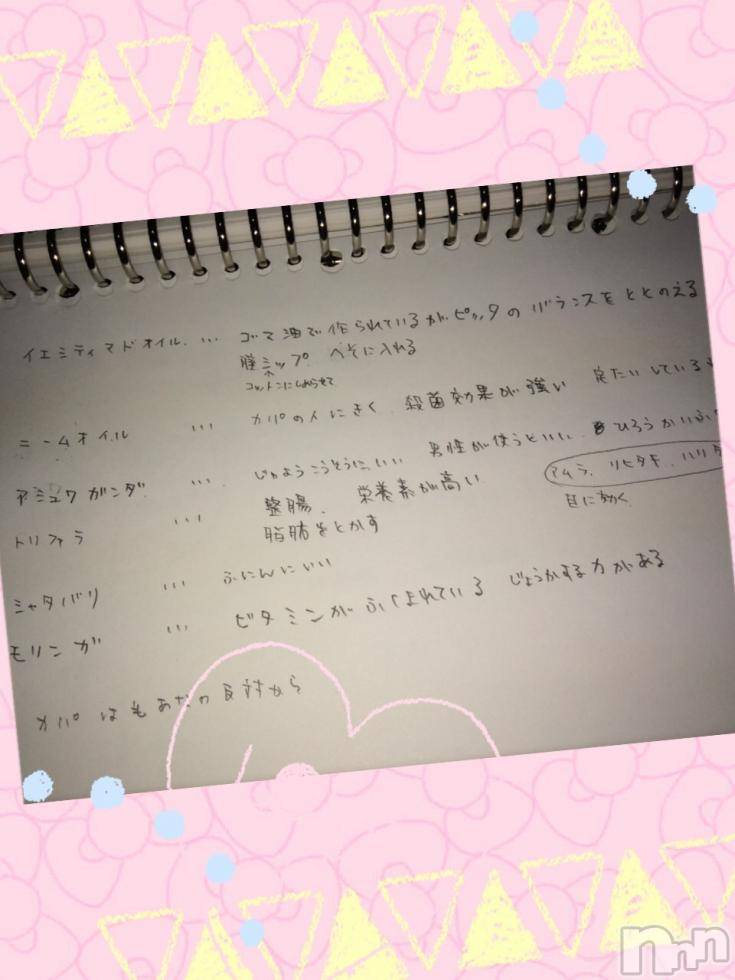 イエミティマドオイル ... ゴマ油で作られているがピッタのバランスをととのえる
膣ミップ. へそに入れる
コットンにしみらせて
ニームオイル ... カパの人にきく. 殺菌効果が強い 定たいしている
アシュワガンダ. ... じようこうそうに、いい 男性が使うといい. ひろうかいふ
トリファラ ... 整腸、 栄養素が高い アムラ、リヒタキ、ハリタ
脂肪をとかす 目に効く
シャタバリ ... ふにんにいい
モリンガ ... ビタミンがふくまれている じょうかする力がある
カパは毛あなの反対から
nnn